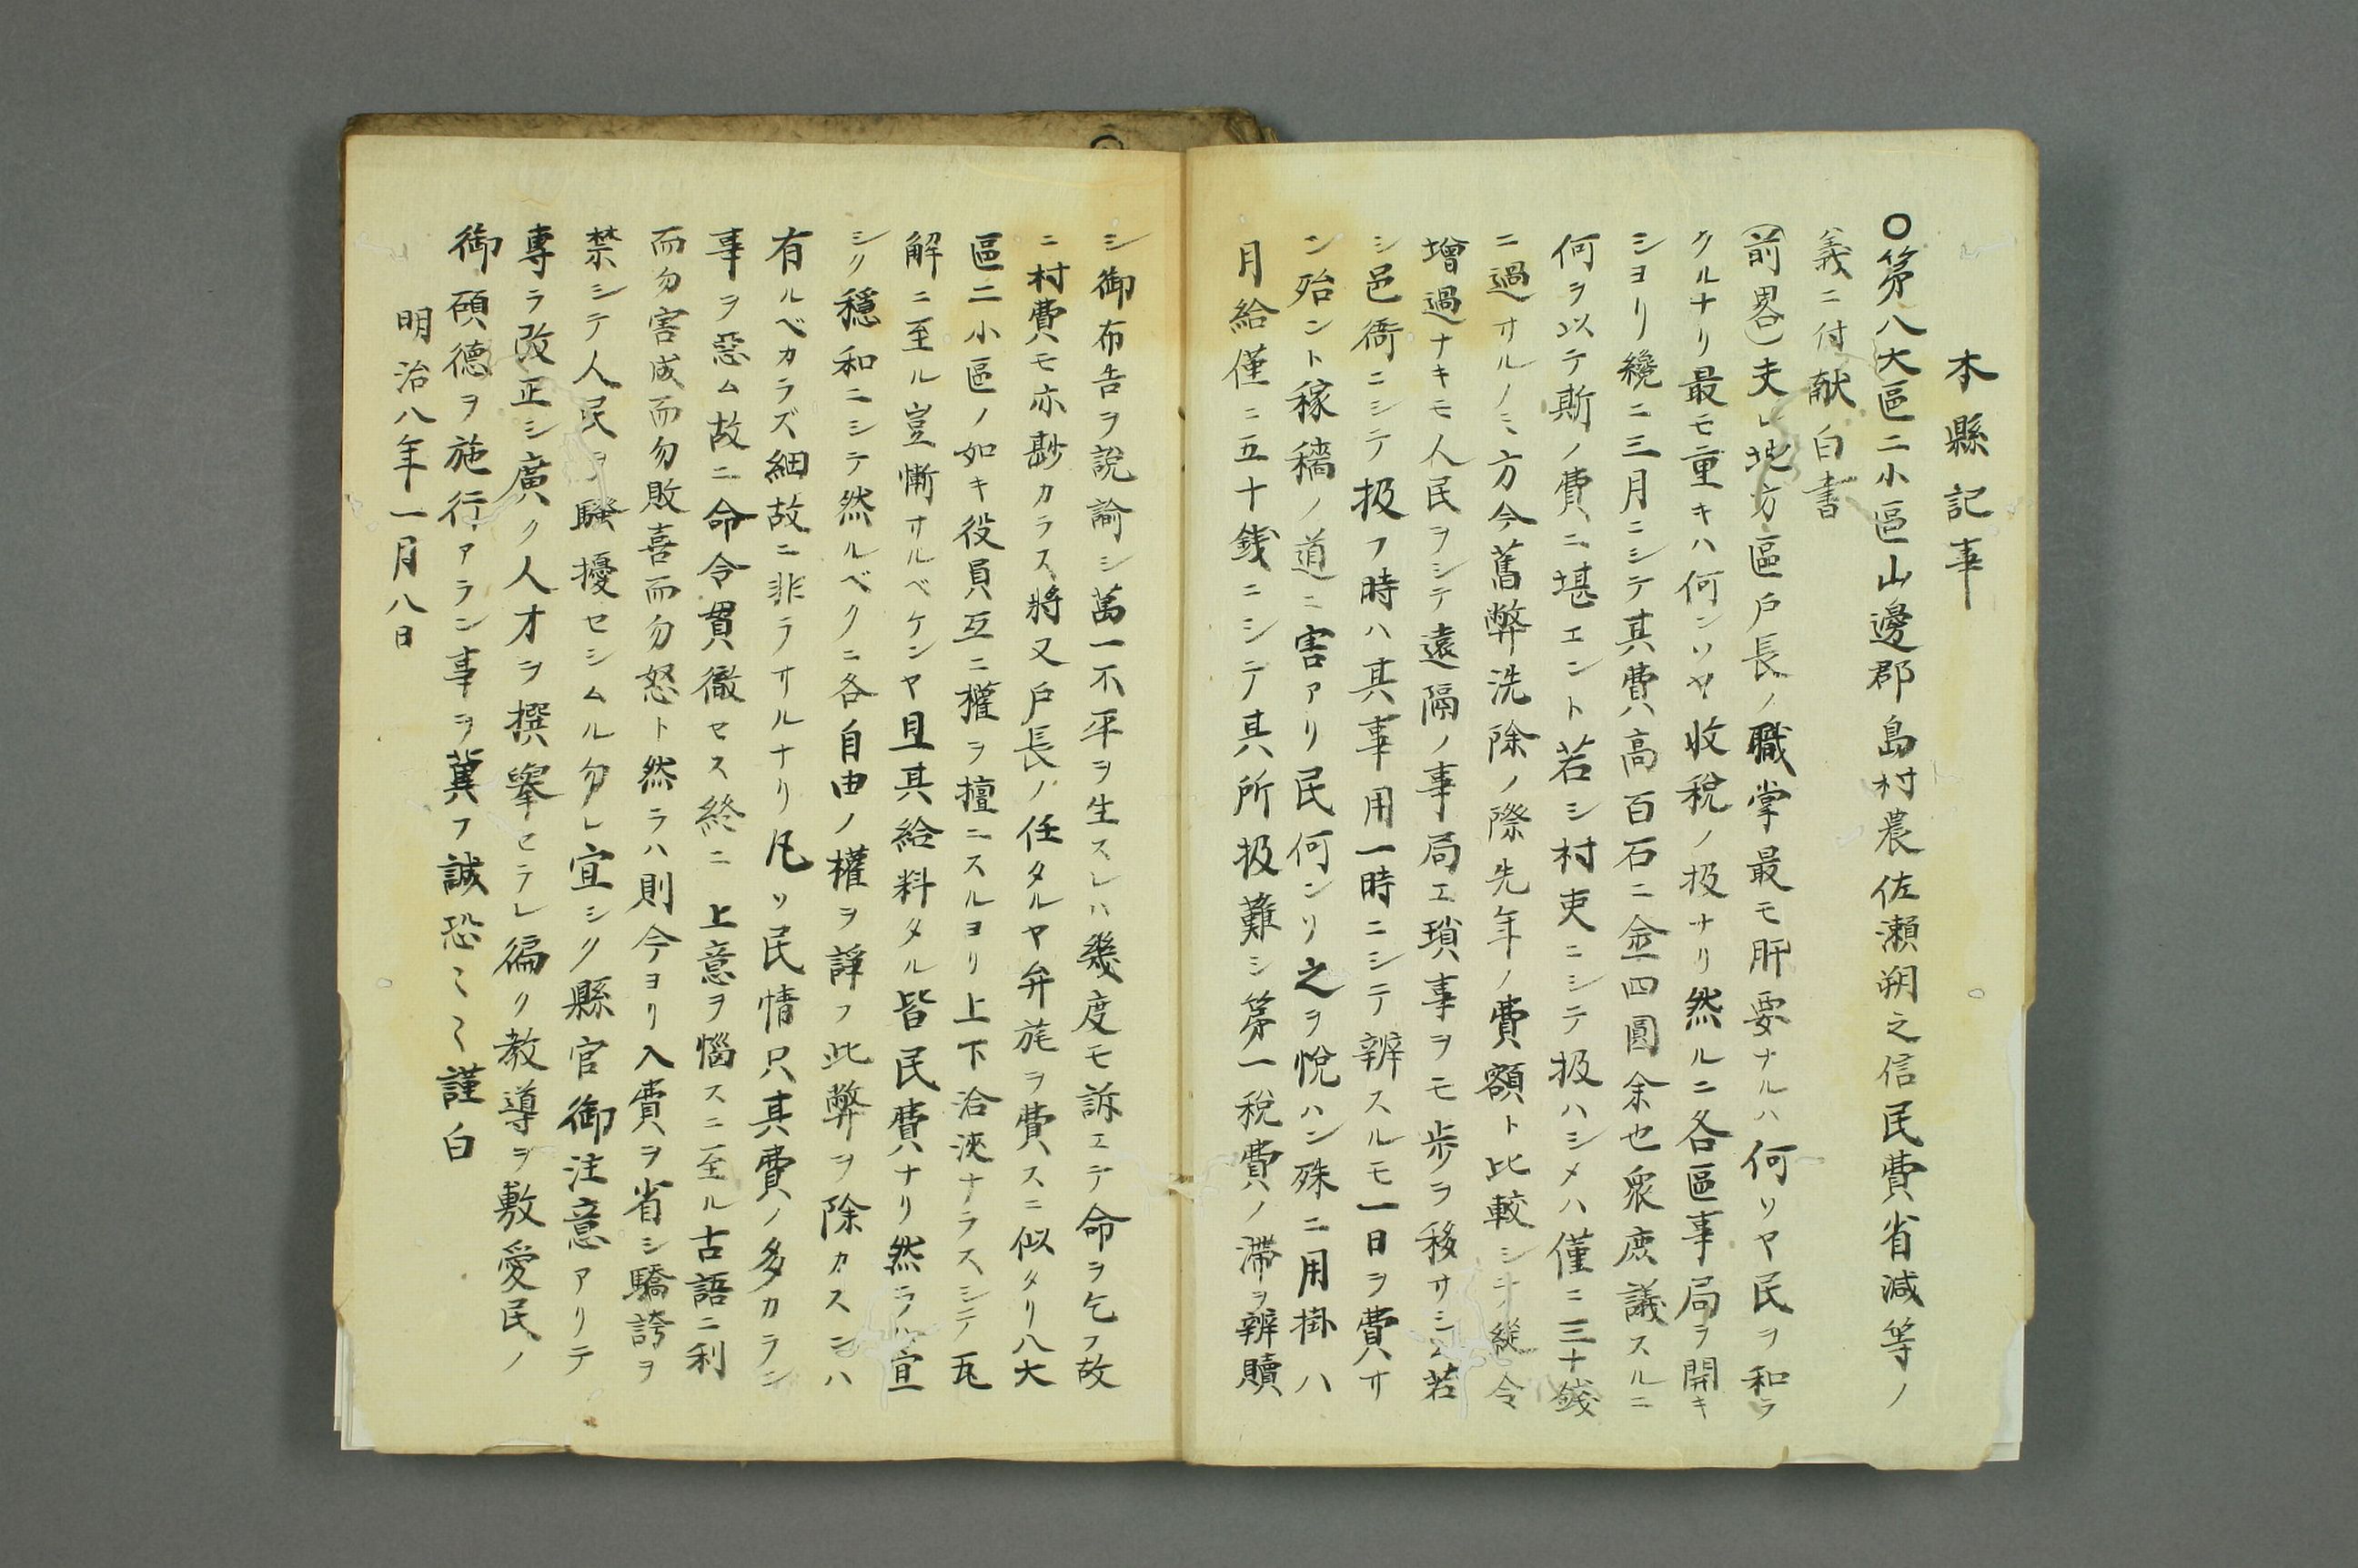 本縣記事
○第八大區二小區山邊郡島村農佐瀬朔之信民費省減等ノ
義ニ付献白書
(前畧)夫レ地方區戸長ノ職掌最モ肝要ナルハ何ソヤ民ヲ和ラ
クルナリ最モ重キハ何ンソヤ收税ノ扱ナリ然ルニ各區事局ヲ開キ
シヨリ纔ニ三月ニシテ其費ハ高百石ニ金四圓余也衆庶議スルニ
何ヲ以テ斯ノ費ニ堪エント若シ村吏ニシテ扱ハシメハ僅ニ三十錢
ニ過サルノミ方今舊弊洗除ノ際先年ノ費額ト比較シテ縦令
増過ナキモ人民ヲシテ遠隔ノ事局エ瑣事ヲモ歩ヲ移サシム若
シ邑衙ニシテ扱フ時ハ其事用一時ニシテ辨スルモ一日ヲ費ハサ
ン殆ント稼穡ノ道ニ害アリ民何ンソ之ヲ悅ハン殊ニ用掛ハ
月給僅ニ五十錢ニシテ其所扱難シ第一税費ノ滞ヲ辨贖
シ御布告ヲ說諭シ萬一不平ヲ生スレハ幾度モ訴エテ命ヲ乞フ故
ニ村費モ亦尠カラス將又戸長ノ任タルヤ弁旄ヲ費スニ似タリ八大
區二小區ノ如キ役員互ニ權ヲ擅ニスルヨリ上下洽浹ナラスシテ瓦
解ニ至ル豈慚サルベケンヤ且其給料タル皆民費ナリ然ラハ宜
シク穩和ニシテ然ルベクニ各自由ノ權ヲ諍フ此弊ヲ除カスンハ
有ルベカラズ細故ニ非ラサルナリ凡ソ民情只其費ノ多カラン
事ヲ惡ム故ニ命令貫徹セス終ニ 上意ヲ惱スニ至ル古語ニ利
而勿害成而勿敗喜而勿怒ト然ラハ則今ヨリ入費ヲ省シ驕誇ヲ
禁シテ人民ヲ騷擾セシムル勿レ宜シク縣官御注意アリテ
專ラ改正シ廣ク人才ヲ撰擧セラレ徧ク教導ヲ敷愛民ノ
御碩德ヲ施行アラン事ヲ冀フ誠恐〻〻謹白
明治八年一月八日